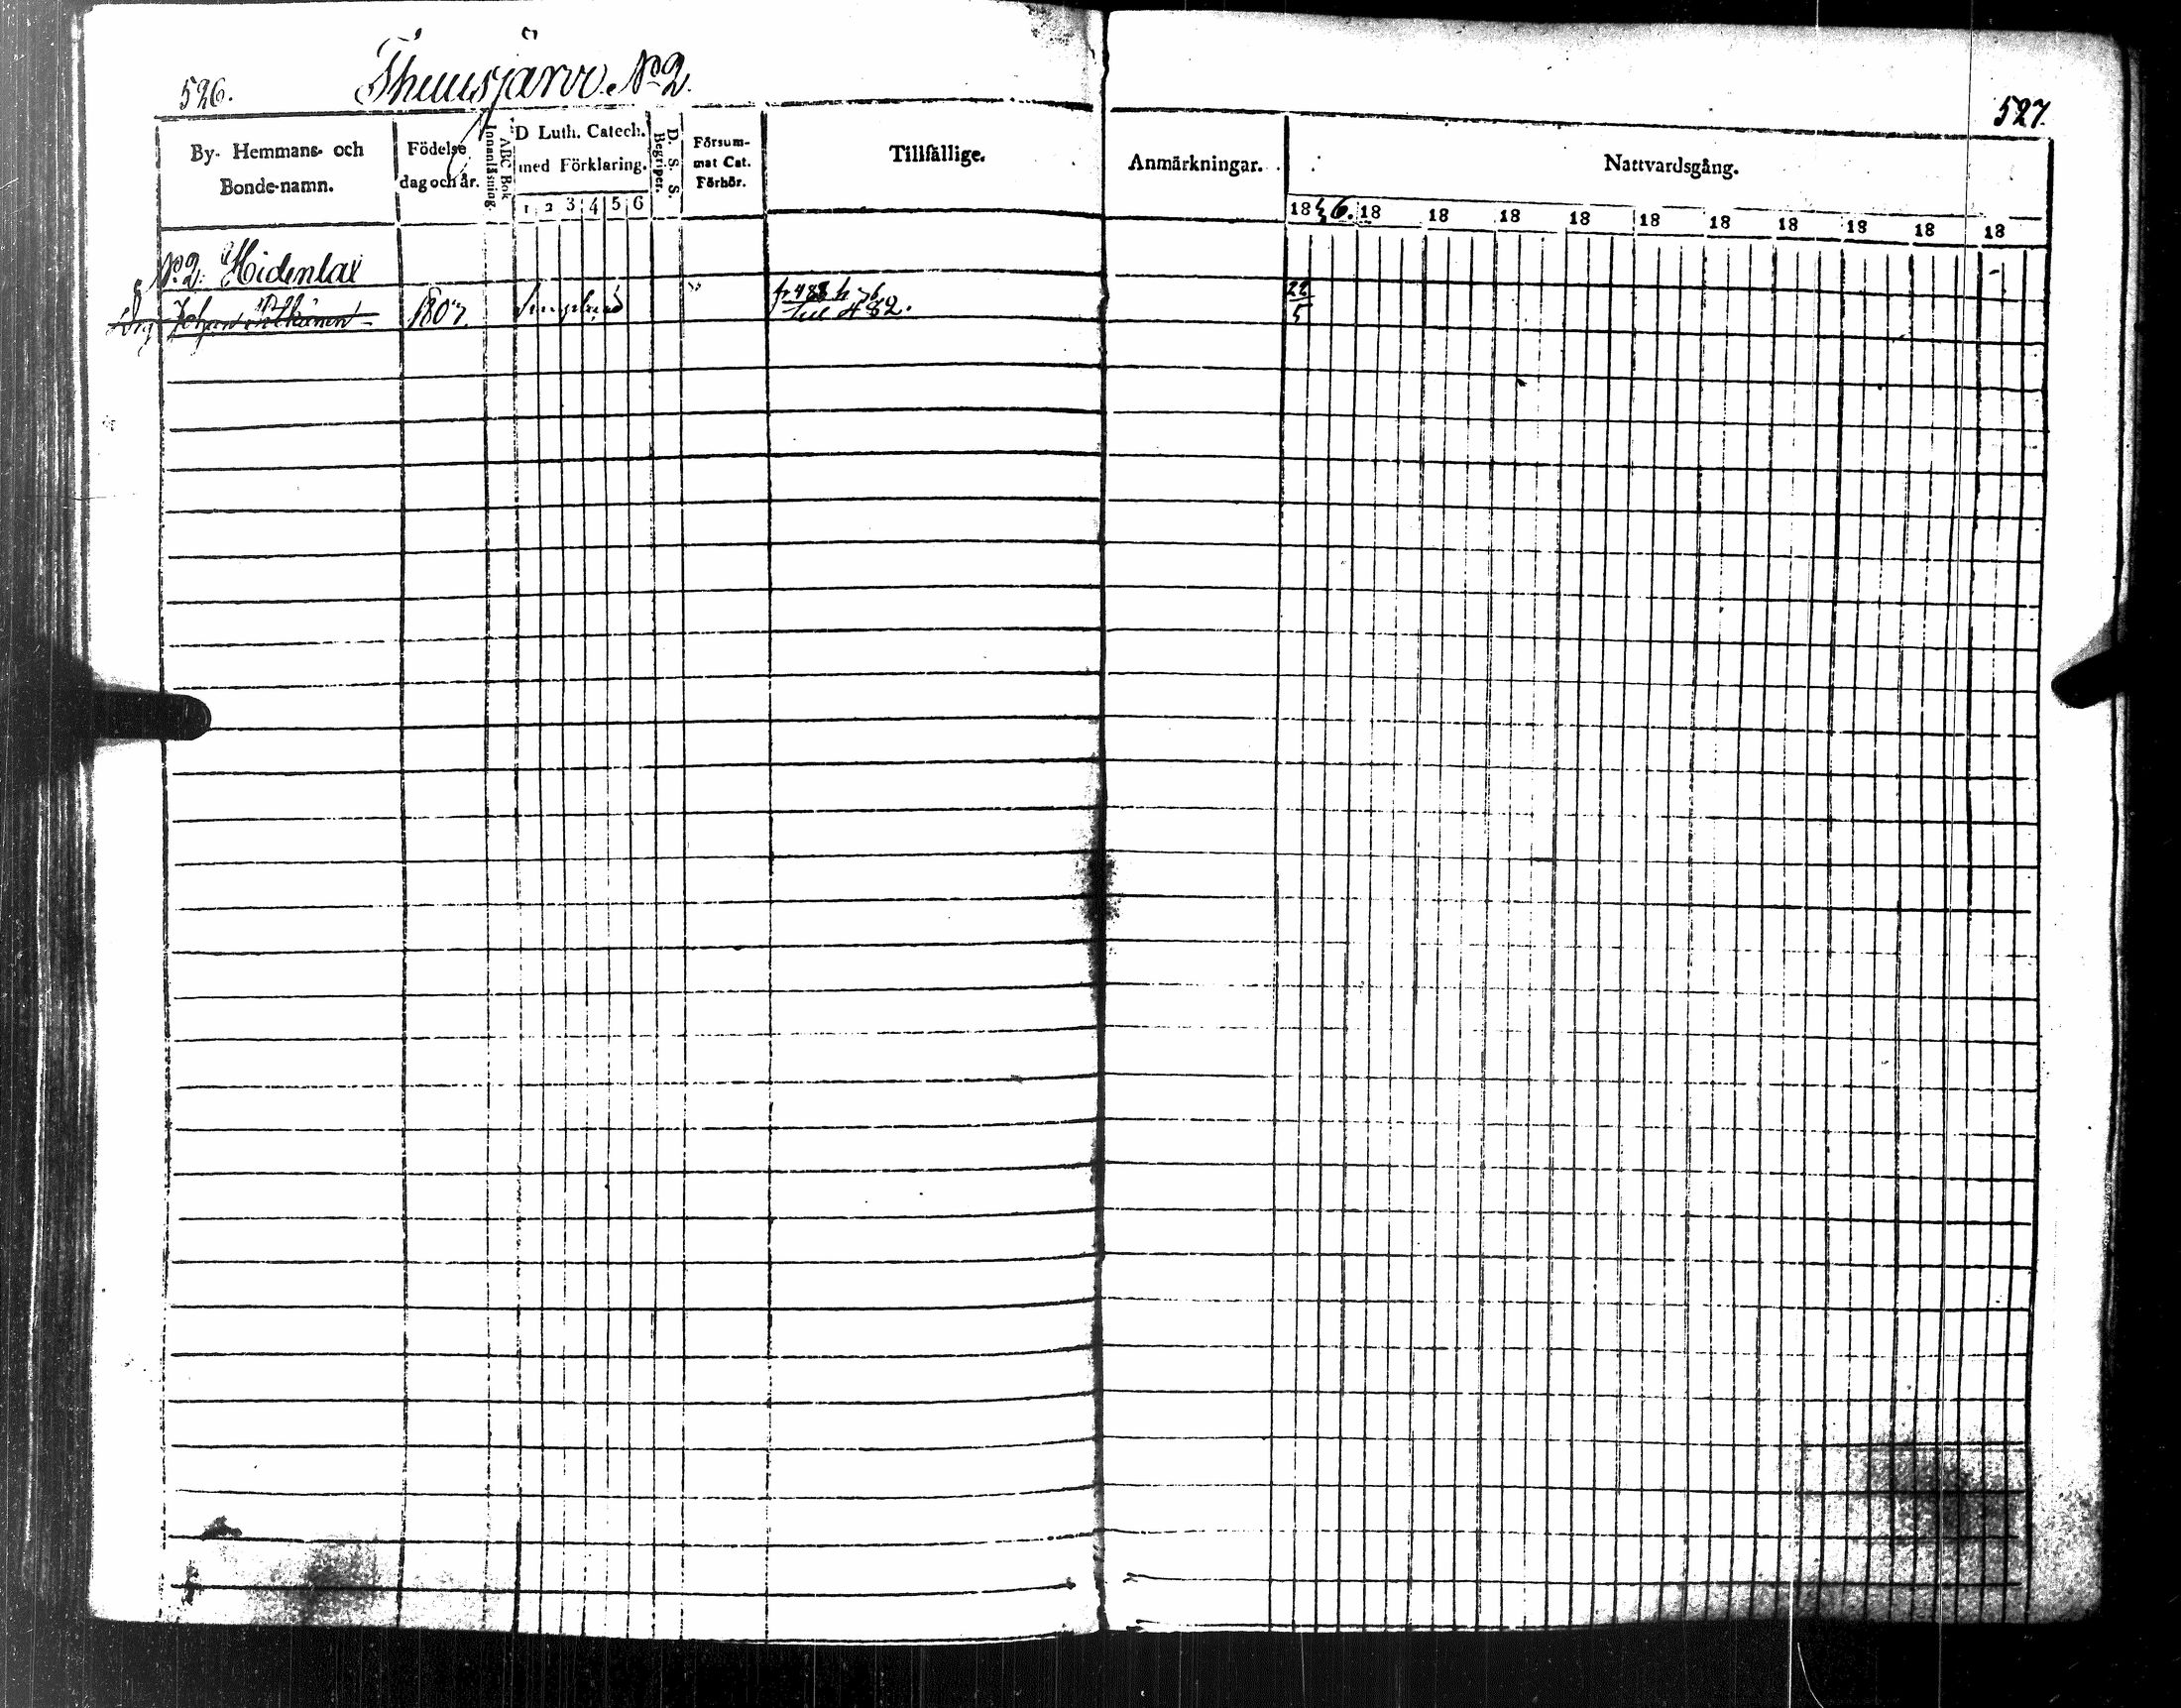 526. Thuusjärvi N:o 2.
527.
By- Hemmans- och Bonde-namn.
Födelse dag och år.
Innanläsning.
ABC Bok
D Luth. Catech. med Förklaring.
1 2 3 4 5 6
D. S. S. Begriper.
Försum- mat Cat. Förhör.
Tillfällige.
Anmärkningar.
Nattvardsgång.
1846. 18 18 18 18 18 18 18 18 18 18
N:o 2. Hidenlax
Drg Johan 1807. fr 488
till 482. 22/5